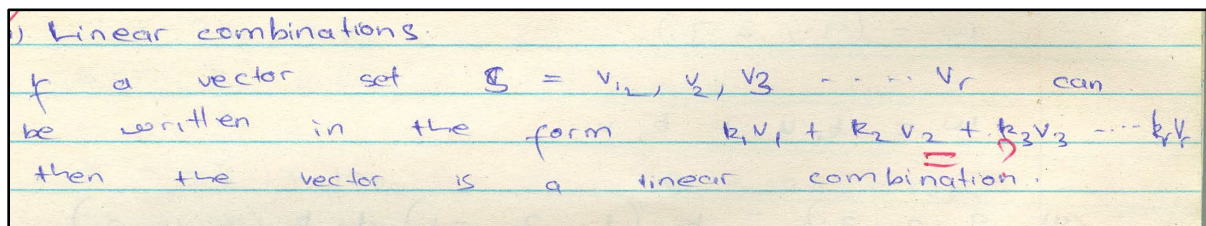 ) Linear combinations.
If a vector set S = v₁, v₂, v3 ----- vr can
be written in the form k₁v₁ + k₂ v₂ + k₃v₃ ---- krvr
then the vector is a linear combination.